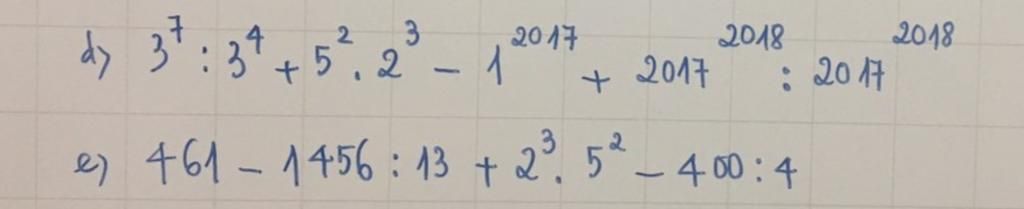 d) 3⁷ : 3⁴ + 5² . 2³ - 1²⁰¹⁷ + 2017²⁰¹⁸ : 2017²⁰¹⁸
e) 461 - 1456 : 13 + 2³ . 5² - 400 : 4